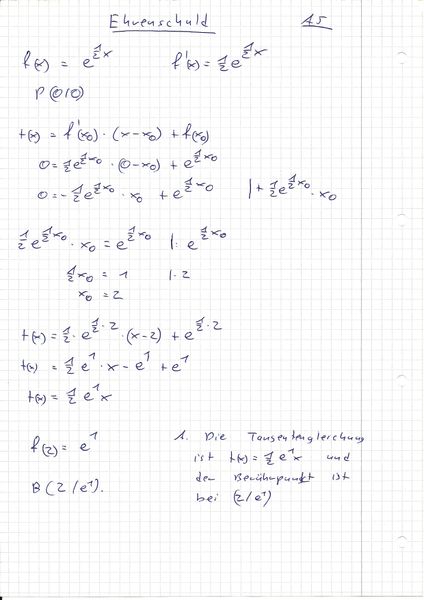 Ehrenschuld A5
f(x) = e^{1/2 x} f'(x) = 1/2 e^{1/2 x}
P(0/0)
t(x) = f'(x₀) · (x-x₀) + f(x₀)
0 = 1/2 e^{1/2 x₀} · (0-x₀) + e^{1/2 x₀}
0 = -1/2 e^{1/2 x₀} · x₀ + e^{1/2 x₀} | + 1/2 e^{1/2 x₀} · x₀
1/2 e^{1/2 x₀} · x₀ = e^{1/2 x₀} | : e^{1/2 x₀}
1/2 x₀ = 1 | · 2
x₀ = 2
t(x) = 1/2 · e^{1/2 · 2} · (x-2) + e^{1/2 · 2}
t(x) = 1/2 e^1 · x - e^1 + e^1
t(x) = 1/2 e^1 x
f(2) = e^1
B(2/e^1).
1. Die Tangentengleichung
ist t(x) = 1/2 e^1 x und
der Berührpunkt ist
bei (2/e^1)